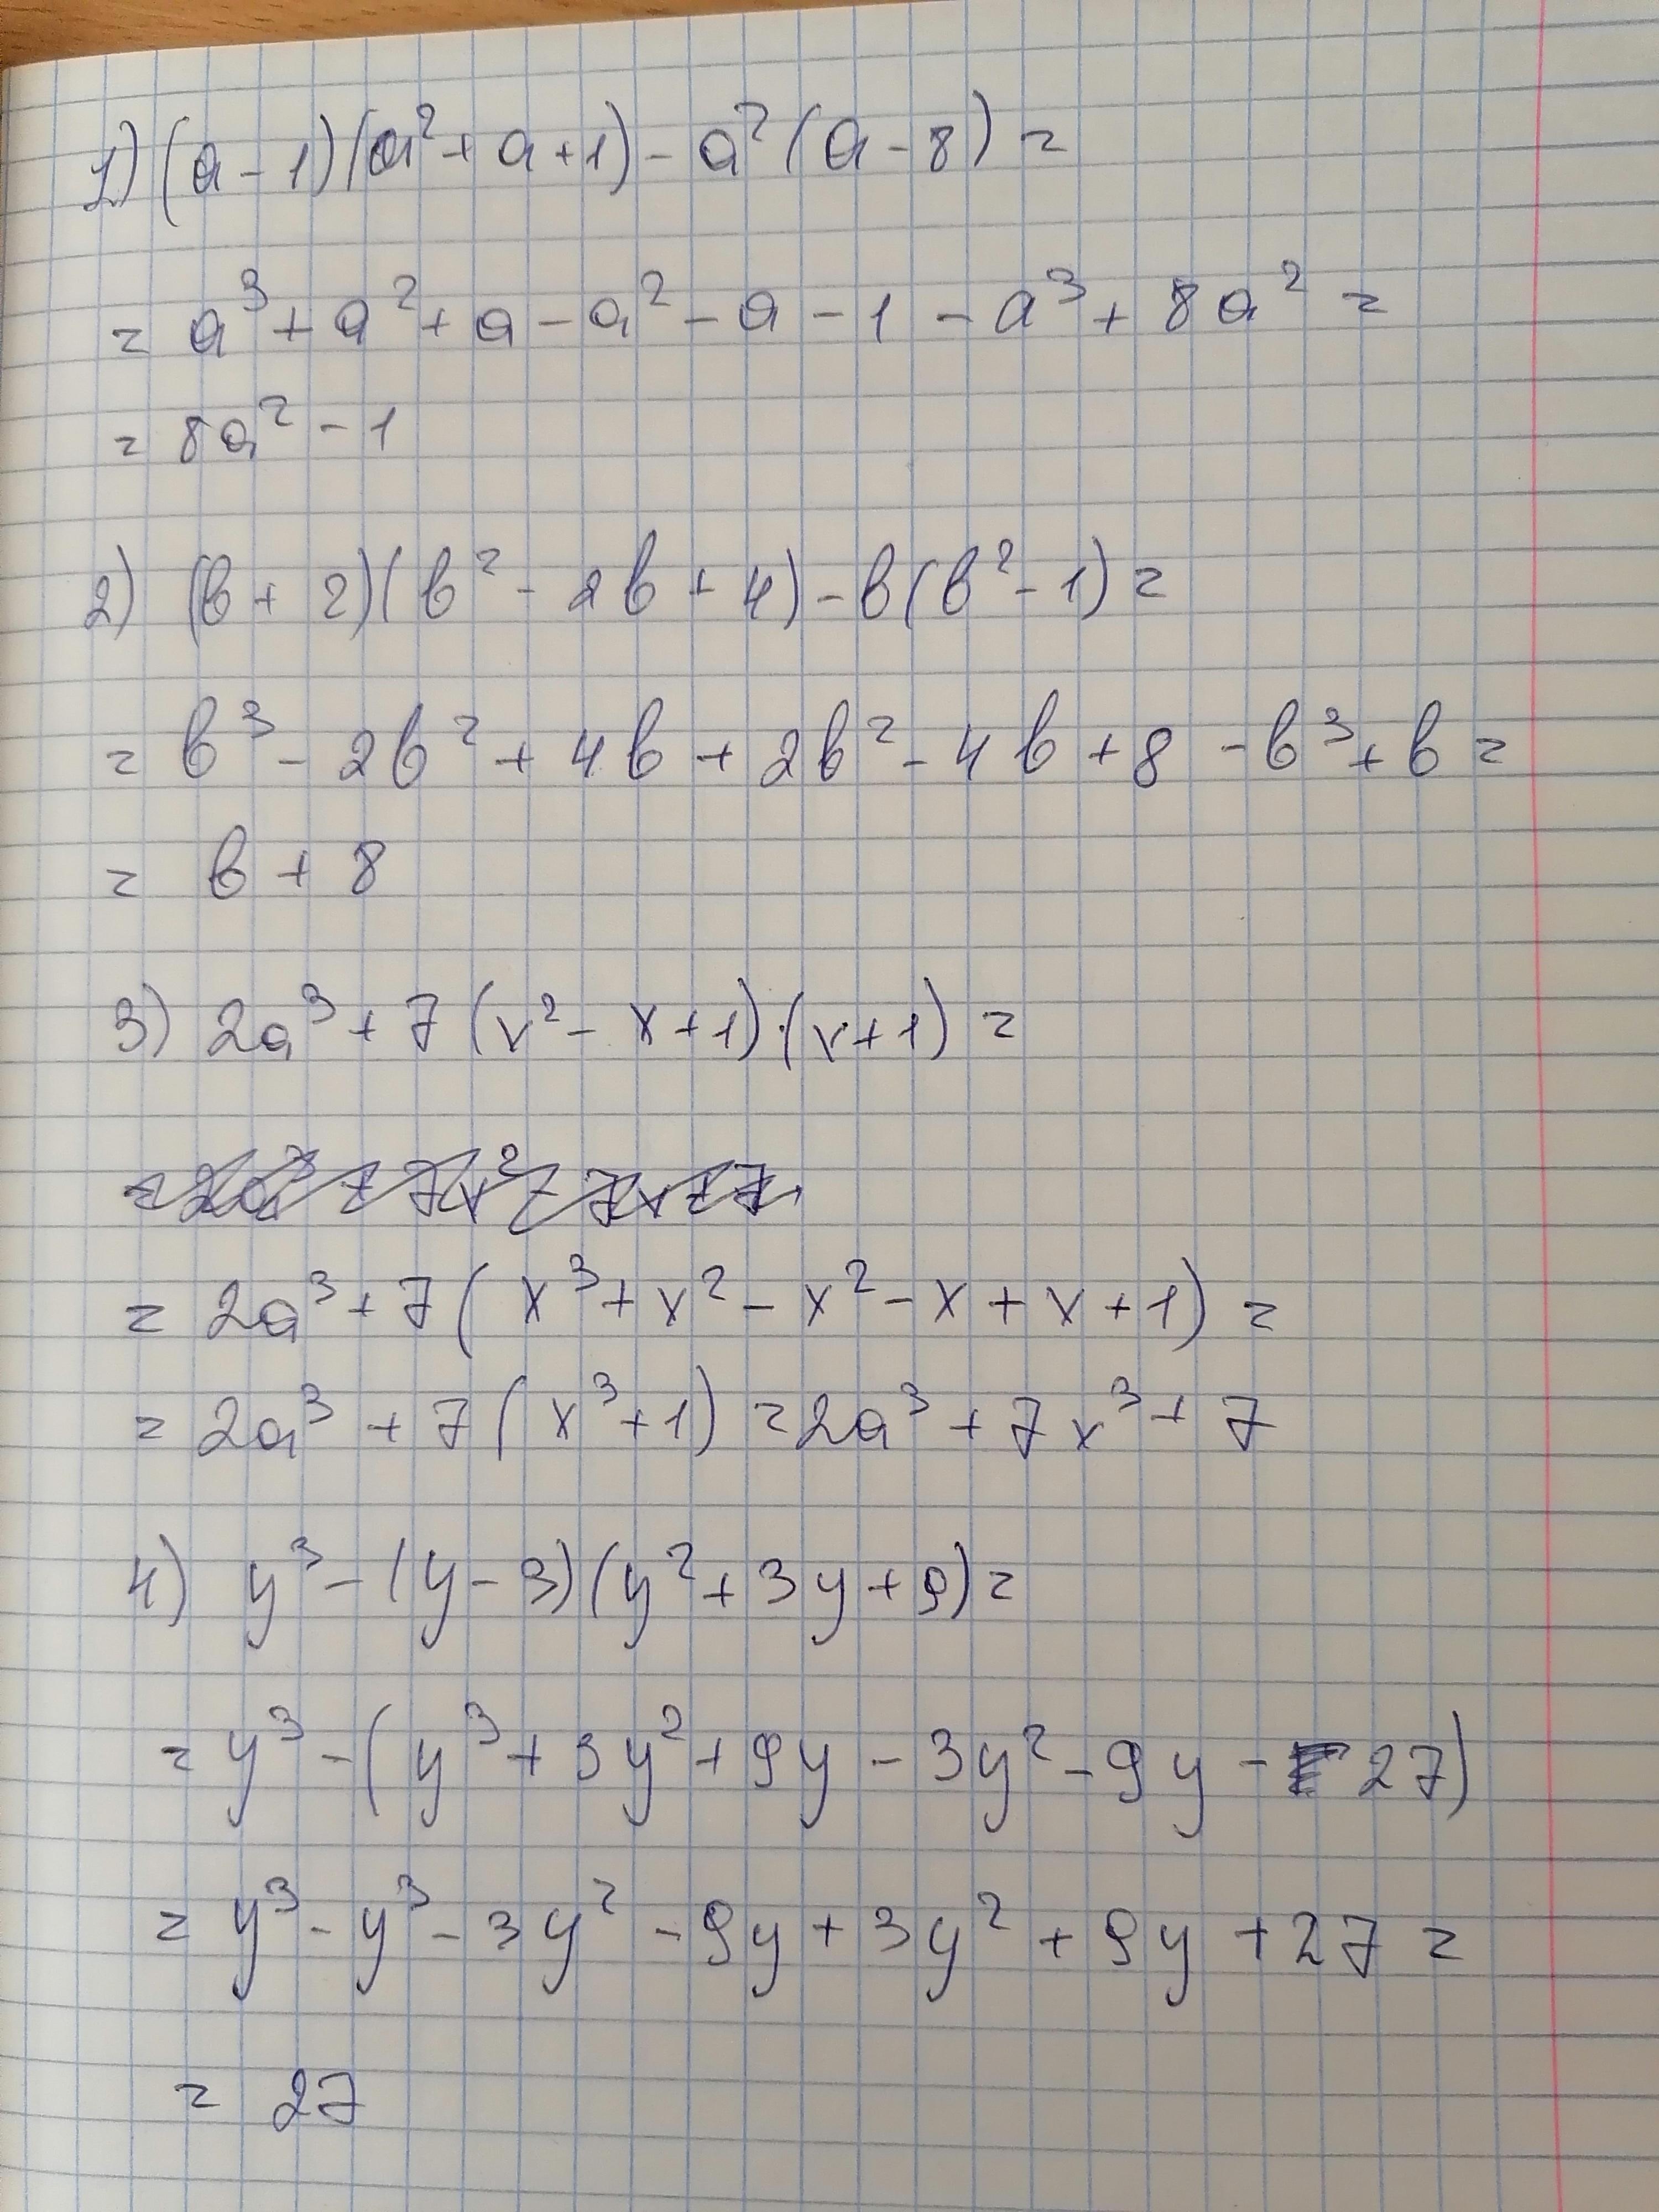 1) (a - 1)(a² + a + 1) - a² (a - 8) =
= a³ + a² + a - a² - a - 1 - a³ + 8a² =
= 8a² - 1
2) (b + 2)(b² - 2b + 4) - b(b² - 1) =
= b³ - 2b² + 4b + 2b² - 4b + 8 - b³ + b =
= b + 8
3) 2a³ + 7 (x² - x + 1)·(x + 1) =
= 2a³ + 7 ( x³ + x² - x² - x + x + 1) =
= 2a³ + 7 ( x³ + 1) = 2a³ + 7x³ + 7
4) y³ - (y - 3)(y² + 3y + 9) =
= y³ - (y³ + 3y² + 9y - 3y² - 9y - 27)
= y³ - y³ - 3y² - 9y + 3y² + 9y + 27 =
= 27